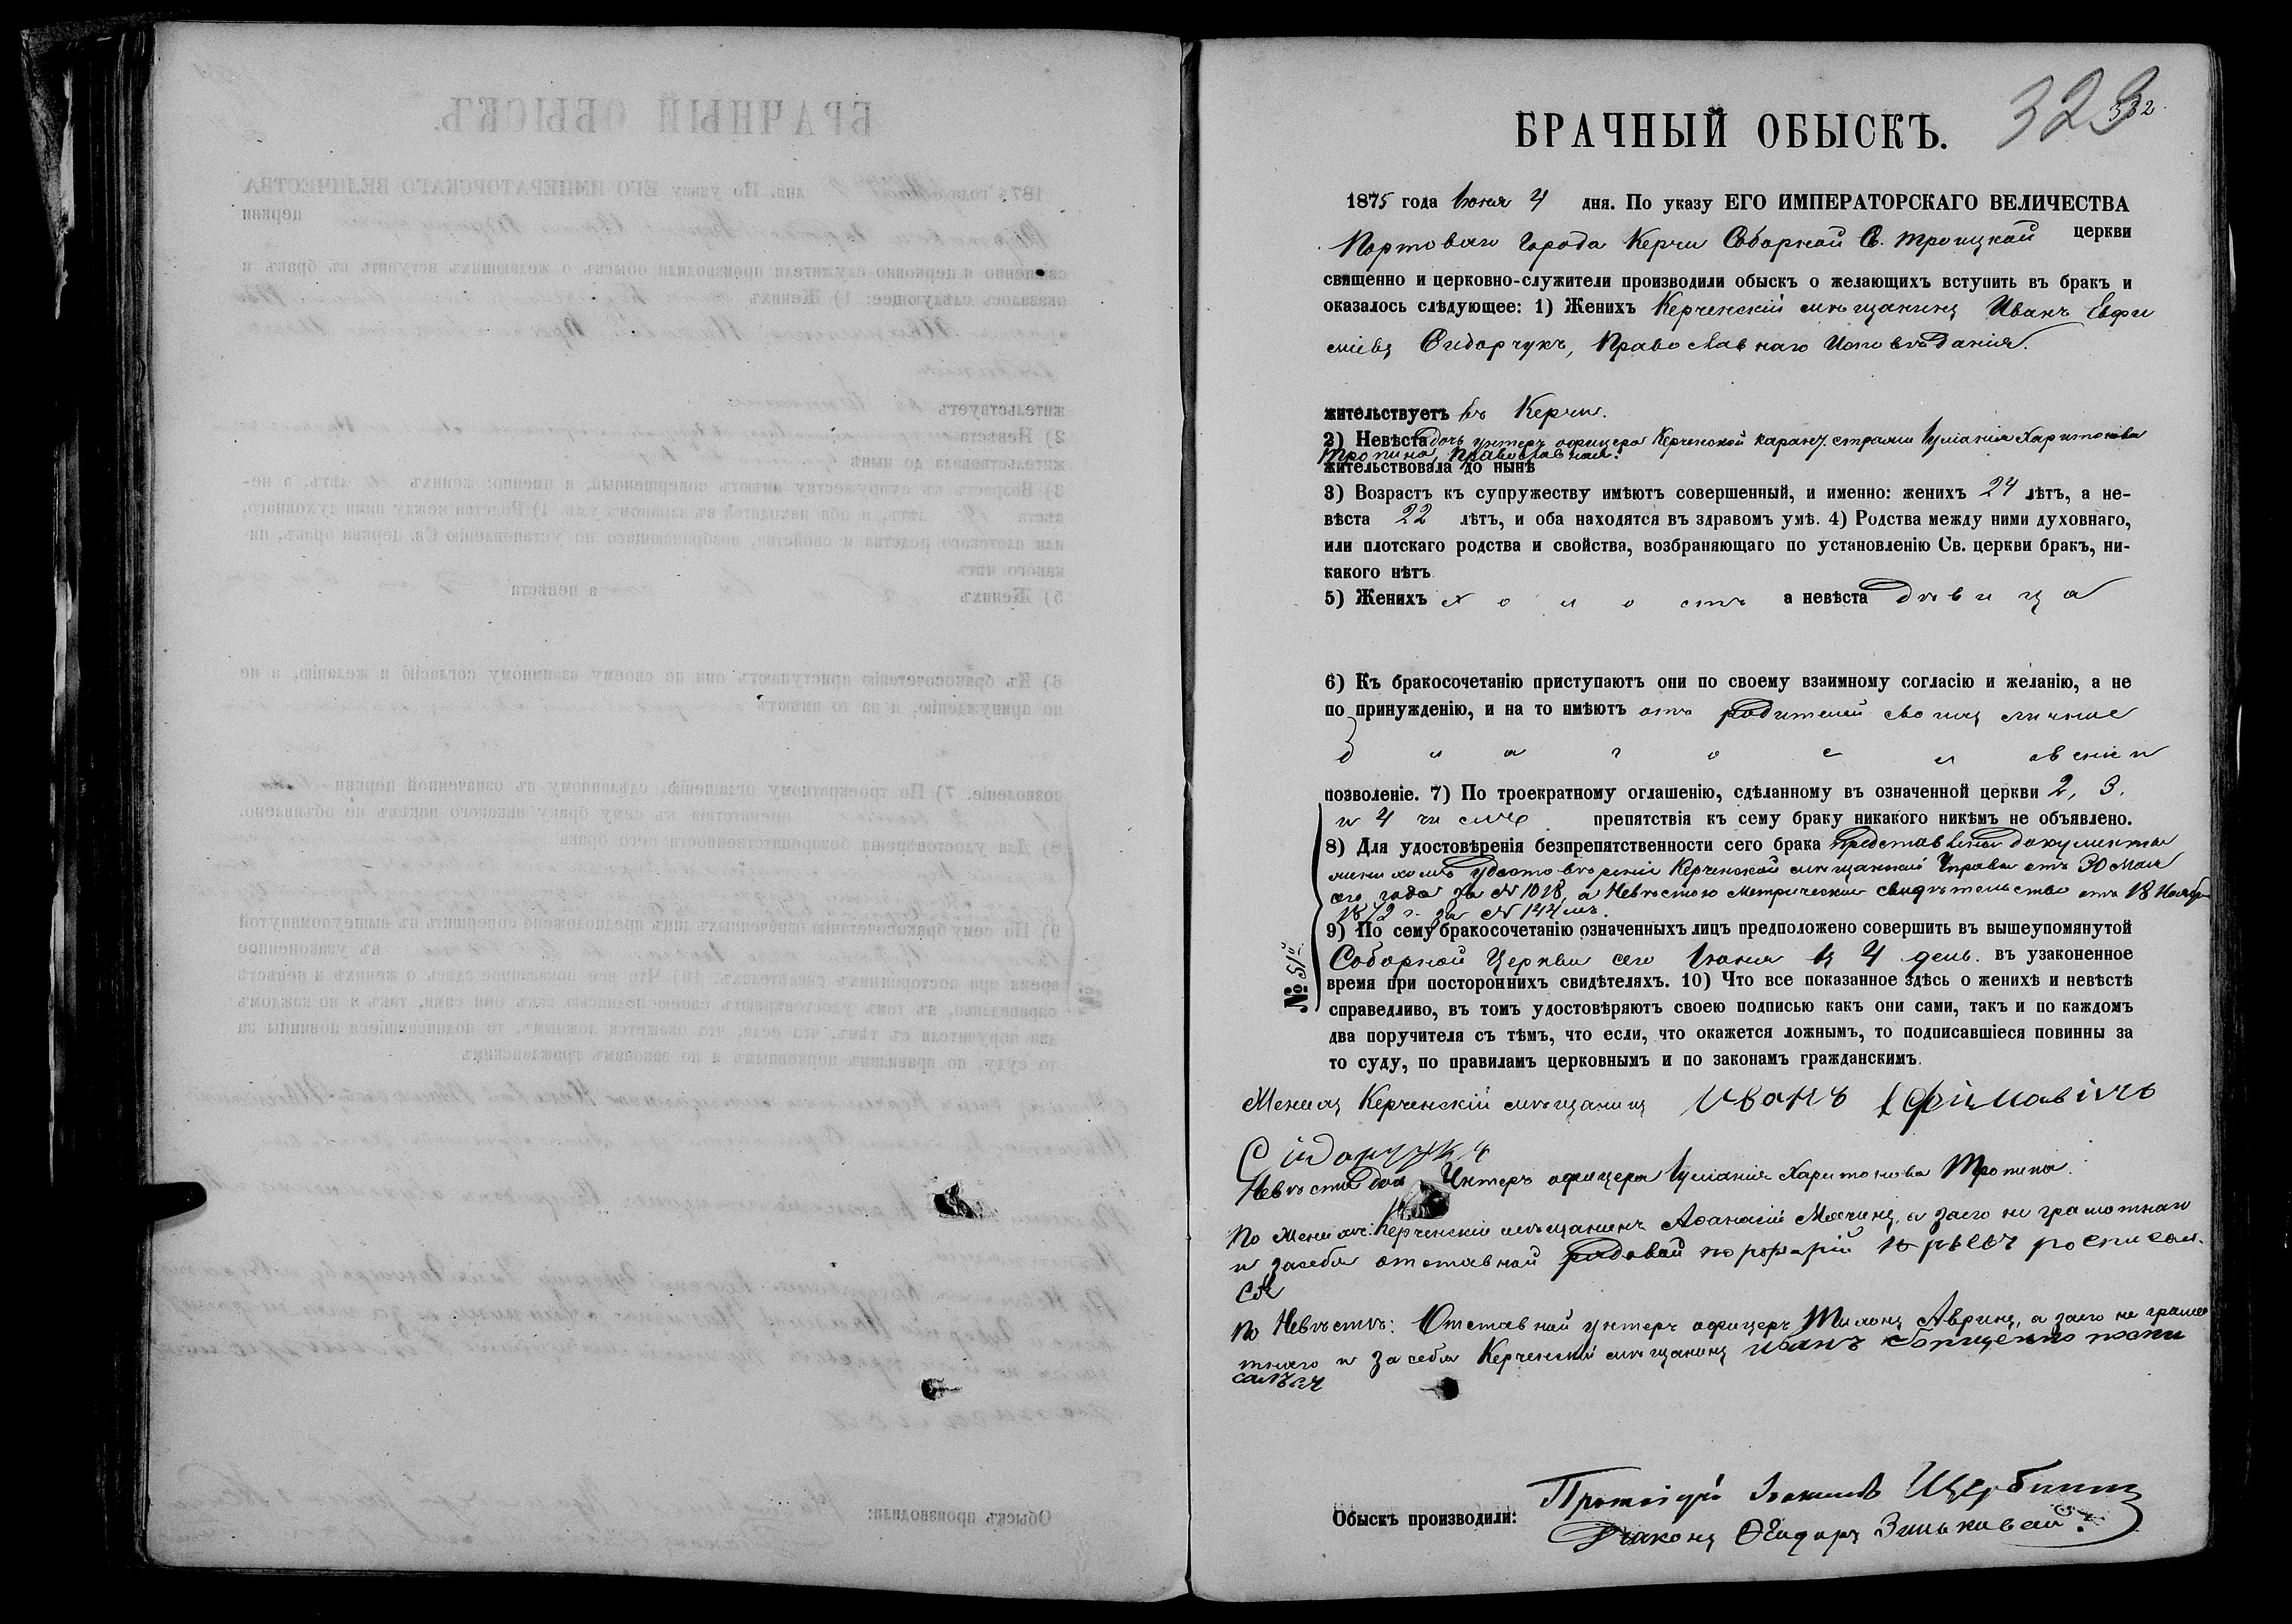 323
332
БРАЧНЫЙ ОБЫСКЪ.
1875 года Іюня 4 дня. По указу ЕГО ИМПЕРАТОРСКАГО ВЕЛИЧЕСТВА
Портоваго Города Керчи Соборной Св. Троицкой церкви
священно и церковно-служители производили обыскъ о желающихъ вступить въ бракъ и
оказалось слѣдующее: 1) Женихъ Керченскій мѣщанинъ Иванъ Евфи
міевъ Сидорчукъ, Православнаго Исповѣданія.
жительствуетъ въ Керчи.
2) Невѣста дочь унтеръ офицера Керченской каран. стражи Іуліанія Харитонова
Тропина, Православная.
жительствовала до нынѣ
3) Возрастъ къ супружеству имѣютъ совершенный, и именно: женихъ 24 лѣтъ, а не-
вѣста 22 лѣтъ, и оба находятся въ здравомъ умѣ. 4) Родства между ними духовнаго,
или плотскаго родства и свойства, возбраняющаго по установленію Св. церкви бракъ, ни-
какого нѣтъ
5) Женихъ холостъ а невѣста дѣвица
6) Къ бракосочетанію приступаютъ они по своему взаимному согласію и желанію, а не
по принужденію, и на то имѣютъ отъ родителей своихъ личное
благословеніе и
позволеніе. 7) По троекратному оглашенію, сдѣланному въ означенной церкви 2, 3.
и 4 числѣ препятствія къ сему браку никакого никѣмъ не объявлено.
8) Для удостовѣренія безпрепятственности сего брака представлены документы
женихомъ удостовѣреніе Керченской мѣщанской Управы отъ 30 Мая
сего года за № 1018, а Невѣстою Метрическое свидѣтельство отъ 18 Ноября
1872 г. за № 144мъ.
9) По сему бракосочетанію означенныхъ лицъ предположено совершить въ вышеупомянутой
Соборной Церкви сего Іюня въ 4 день. въ узаконенное
время при постороннихъ свидѣтеляхъ. 10) Что все показанное здѣсь о женихѣ и невѣстѣ
№ 51й
справедливо, въ томъ удостовѣряютъ своею подписью какъ они сами, такъ и по каждомъ
два поручителя съ тѣмъ, что если, что окажется ложнымъ, то подписавшіеся повинны за
то суду, по правиламъ церковнымъ и по законамъ гражданскимъ.
Женихъ Керченскій мѣщанинъ Иванъ Ефімавічъ
Сідарчукъ
Невѣста дочь Унтеръ офицера Іуліанія Харитонова Тропина.
По Женихѣ: Керченскій мѣщанинъ Аѳанасій Мячинъ, а заего неграмотнаго
и засебя отставной рядовой росписал-
ся
По Невѣстѣ: Отставной унтеръ офицеръ Авринъ, а заего неграмо
тнаго и за себя Керченскій мѣщанинъ Иванъ роспи
салъся
Обыскъ производили: Протоіерей Іоакимъ Щербининъ
Діаконъ Ѳеодоръ Зиньковскій.